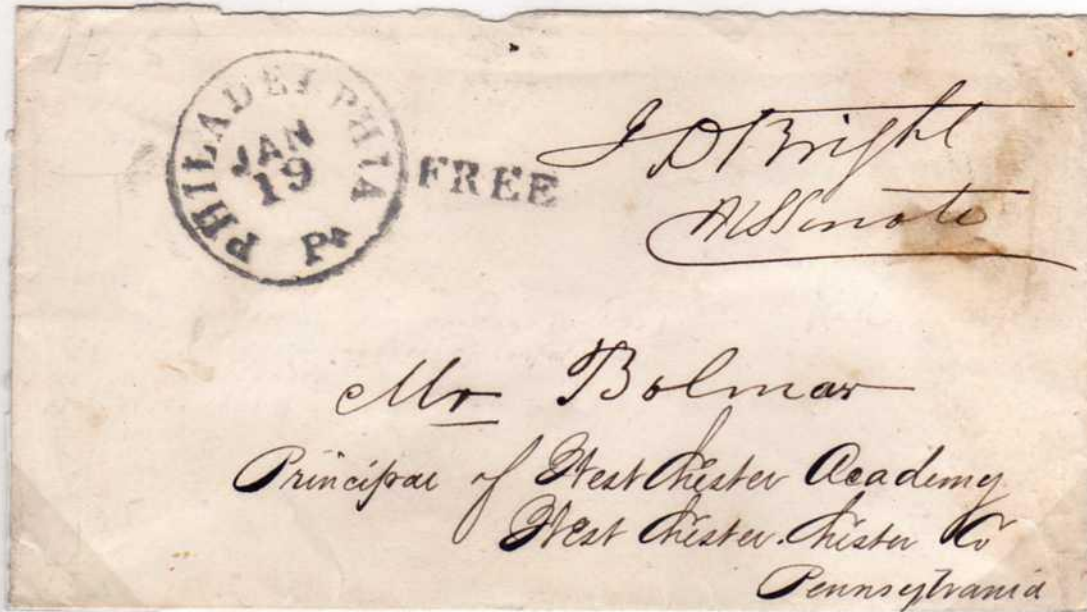 PHILADELPHIA Pa
JAN
19
FREE
J D Bright
US Senate
Mr Bolmar
Principal of West Chester Academy
West Chester. Chester Co
Pennsylvania